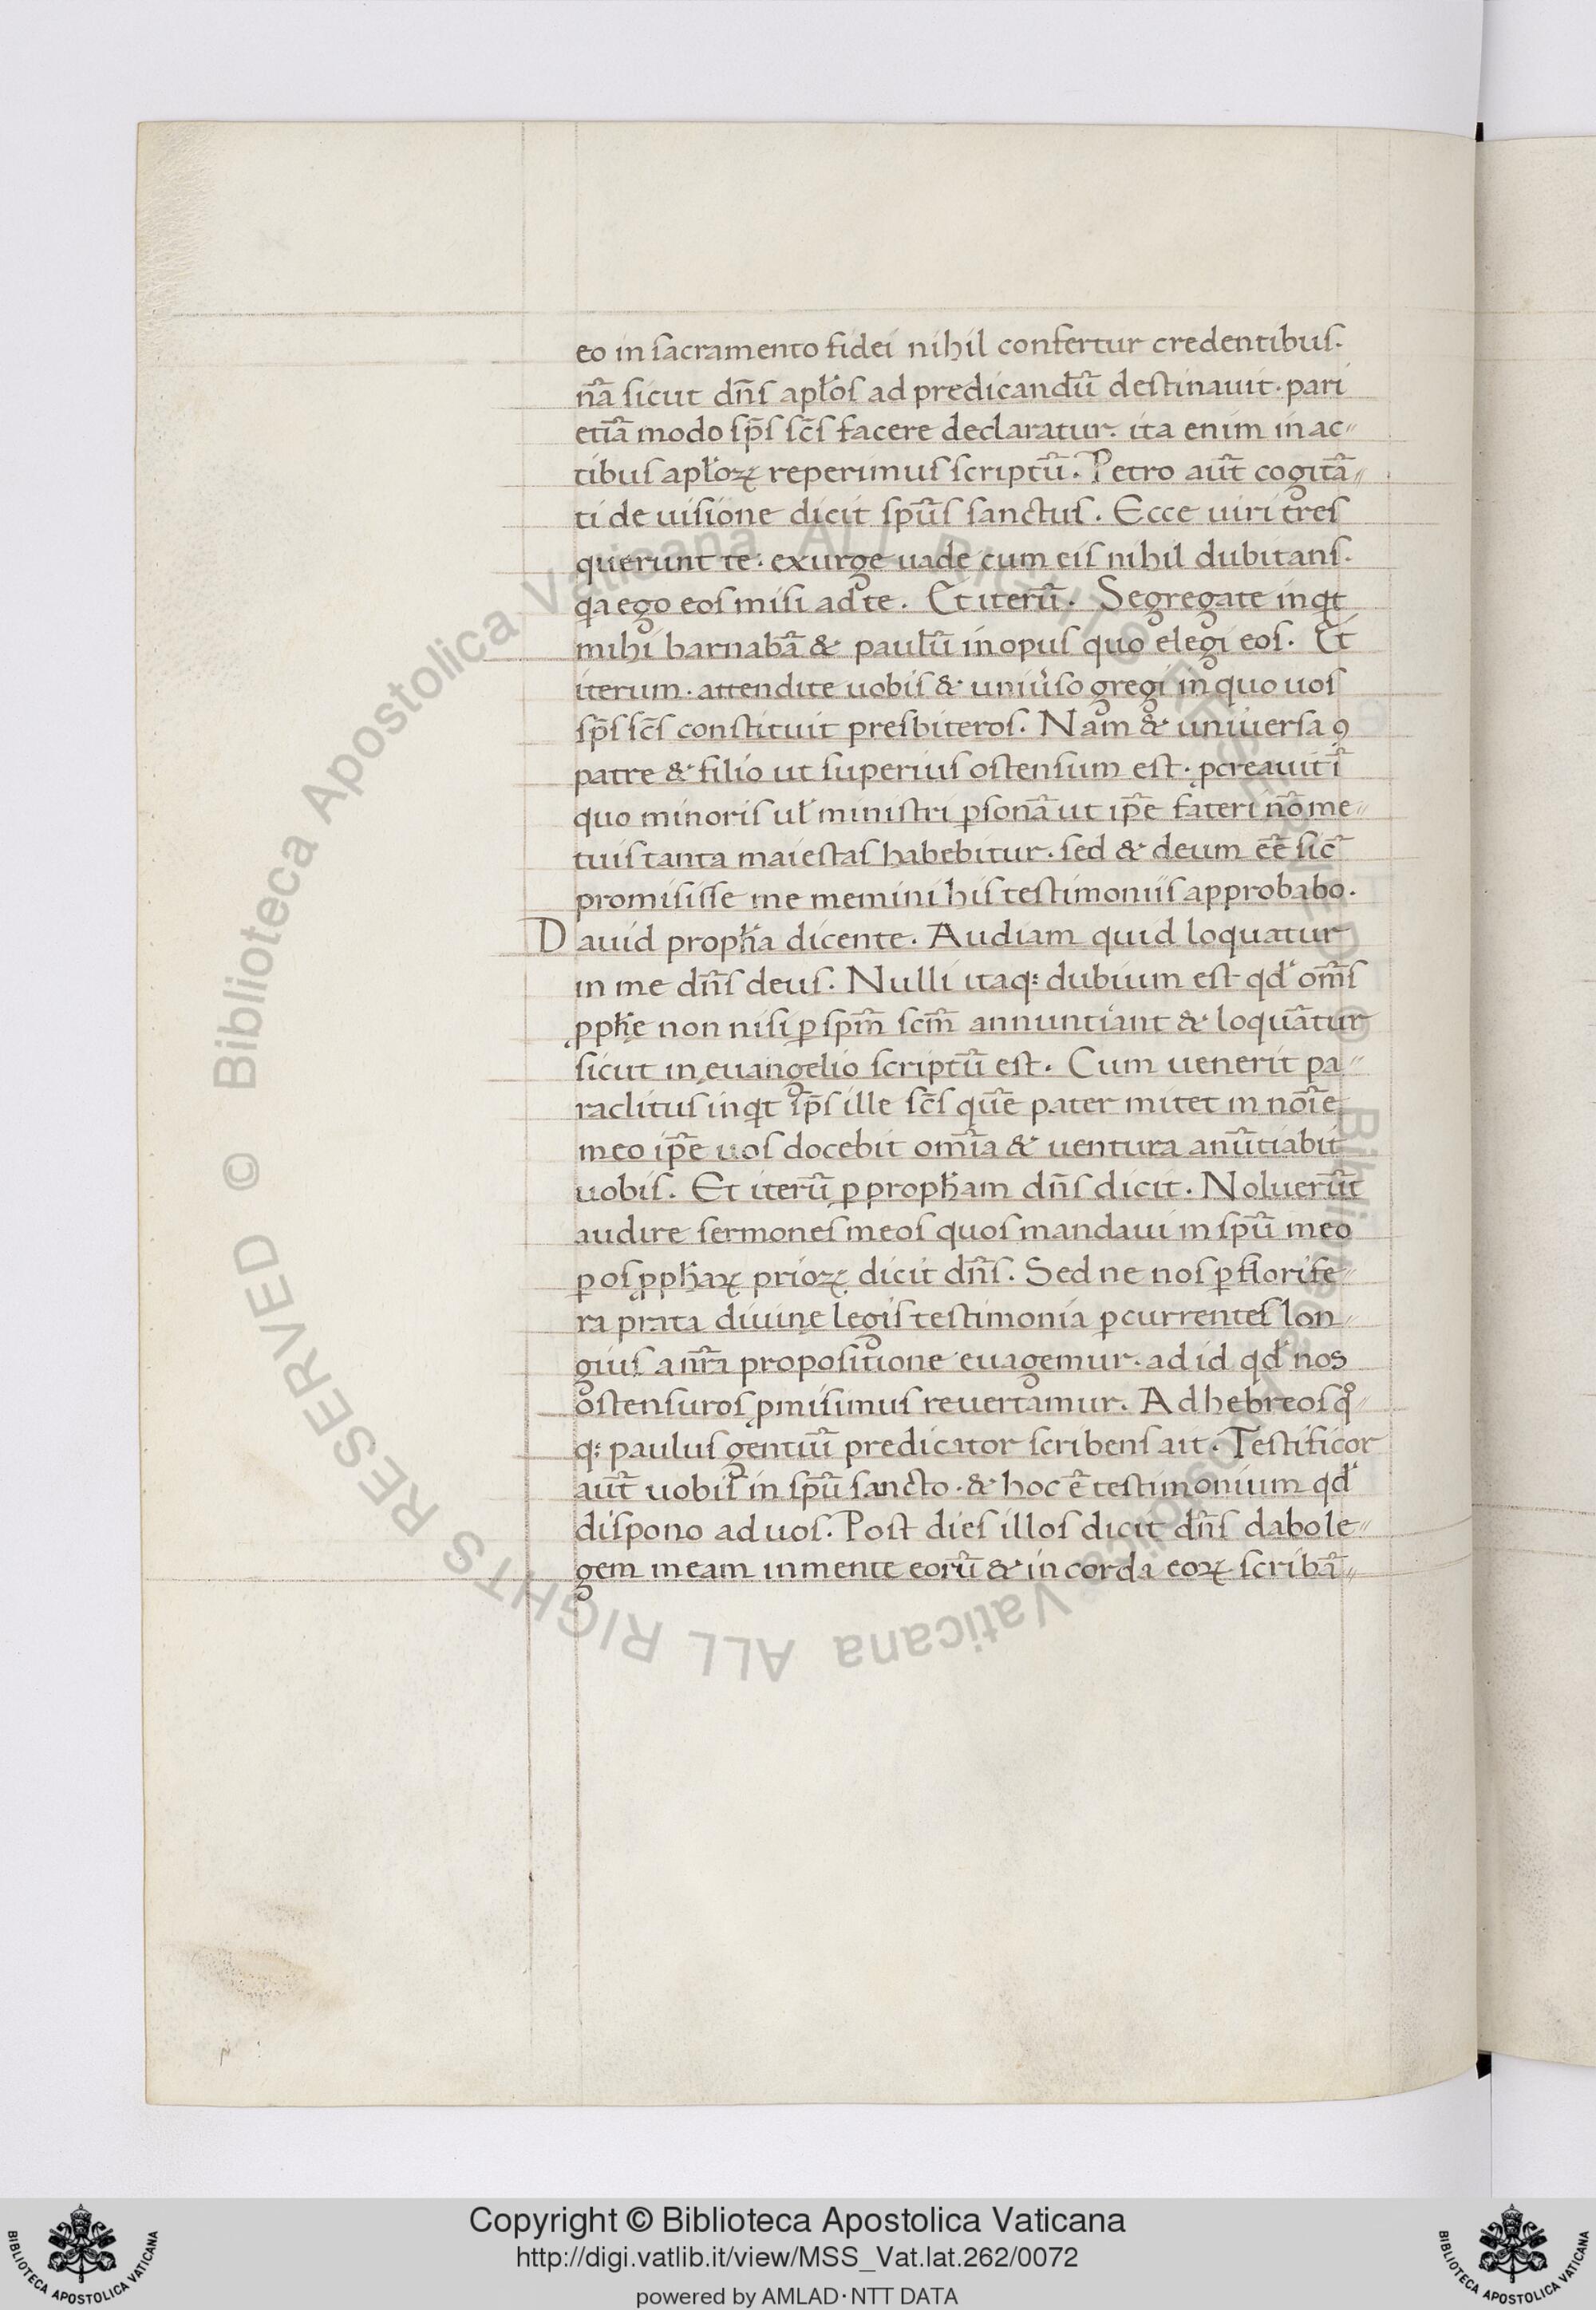 eo in sacramento fidei nihil confertur credentibus.
nã sicut dñs apłos ad predicandũ destinavit. pari
etiã modo sp̃s sc̃s facere declaratur. ita enim in ac〃
tibus apłoꝝ reperimus scriptũ. Petro aut̃ cogitã〃
ti de uisione dicit spũs sanctus. Ecce uiri tres
querunt te. exurge uade cum eis nihil dubitans.
qa ego eos misi ad te. Et iterũ. Segregate inqt
mihi barnabã & paulũ in opus quo elegi eos. Et
iterum. attendite uobis & uniũso gregi in quo uos
sp̃s sc̃s constituit presbiteros. Nam & universa ꝯ
patre & filio ut superius ostensum est. ꝓcreavit ĩ
quo minoris uł ministri ꝑsonã ut ip̃e fateri nõ me〃
tuis tanta maiestas habebitur. sed & deum eẽ sic̃
promisisse me memini his testimoniis approbabo.
David proph̃a dicente. Audiam quid loquatur
in me dñs deus. Nulli itaq: dubium est qd' om̃s
ꝓph̃e non nisi ꝑ spm̃ scm̃ annuntiant & loquãtur
sicut in euangelio scriptũ est. Cum uenerit pa〃
raclitus inqt sp̃s ille sc̃s quẽ pater mitet in noĩe
meo ip̃e uos docebit omĩa & uentura anũtiabit
uobis. Et iterũ ꝑ proph̃am dñs dicit. Noluerũt
audire sermones meos quos mandaui in spũ meo
ꝑ os ꝓph̃aꝝ prioꝝ dicit dñs. Sed ne nos ꝑ florife〃
ra prata diuine legis testimonia ꝑcurrentes lon〃
gius a nr̃a propositione euagemur. ad id qd' nos
ostensuros ꝓmisimus revertamur. Ad hebreos qº〃
q: paulus gentiũ predicator scribens ait. Testificor
aut̃ uobis in spũ sancto. & hoc ẽ testimonium qd'
dispono ad uos. Post dies illos dicit dñs dabo le〃
gem meam in mente eorũ & in corda eoꝝ scribã〃
Copyright © Biblioteca Apostolica Vaticana
http://digi.vatlib.it/view/MSS_Vat.lat.262/0072
powered by AMLAD·NTT DATA
BIBLIOTECA APOSTOLICA VATICANA
BIBLIOTECA APOSTOLICA VATICANA
© Biblioteca Apostolica Vaticana ALL RIGHTS RESERVED
© Biblioteca Apostolica Vaticana ALL RIGHTS RESERVED